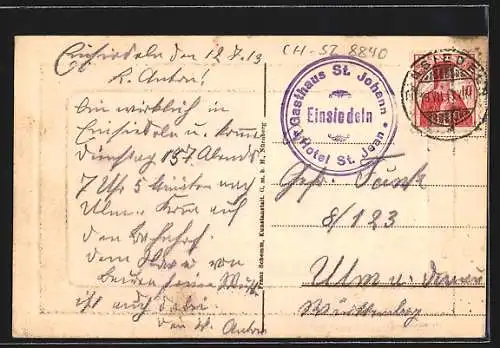 Einsiedeln den 12.7.13
L. Anton!
bin wirklich in
Einsiedeln u. komme
Dienstag 15.7. Abends
7 Uhr 5 Minuten nach
Ulm. Komm auf
den Bahnhof.
dem
ist auch dabei.
Anton
CH-SZ 8840
Gasthaus St. Johann
Einsiedeln
Hotel St. Jean
EINSIEDELN
10
Gefr. Funk
8/123
Ulm a. Donau
Württemberg
Franz Schemm, Kunstanstalt G. m. b. H., Nürnberg